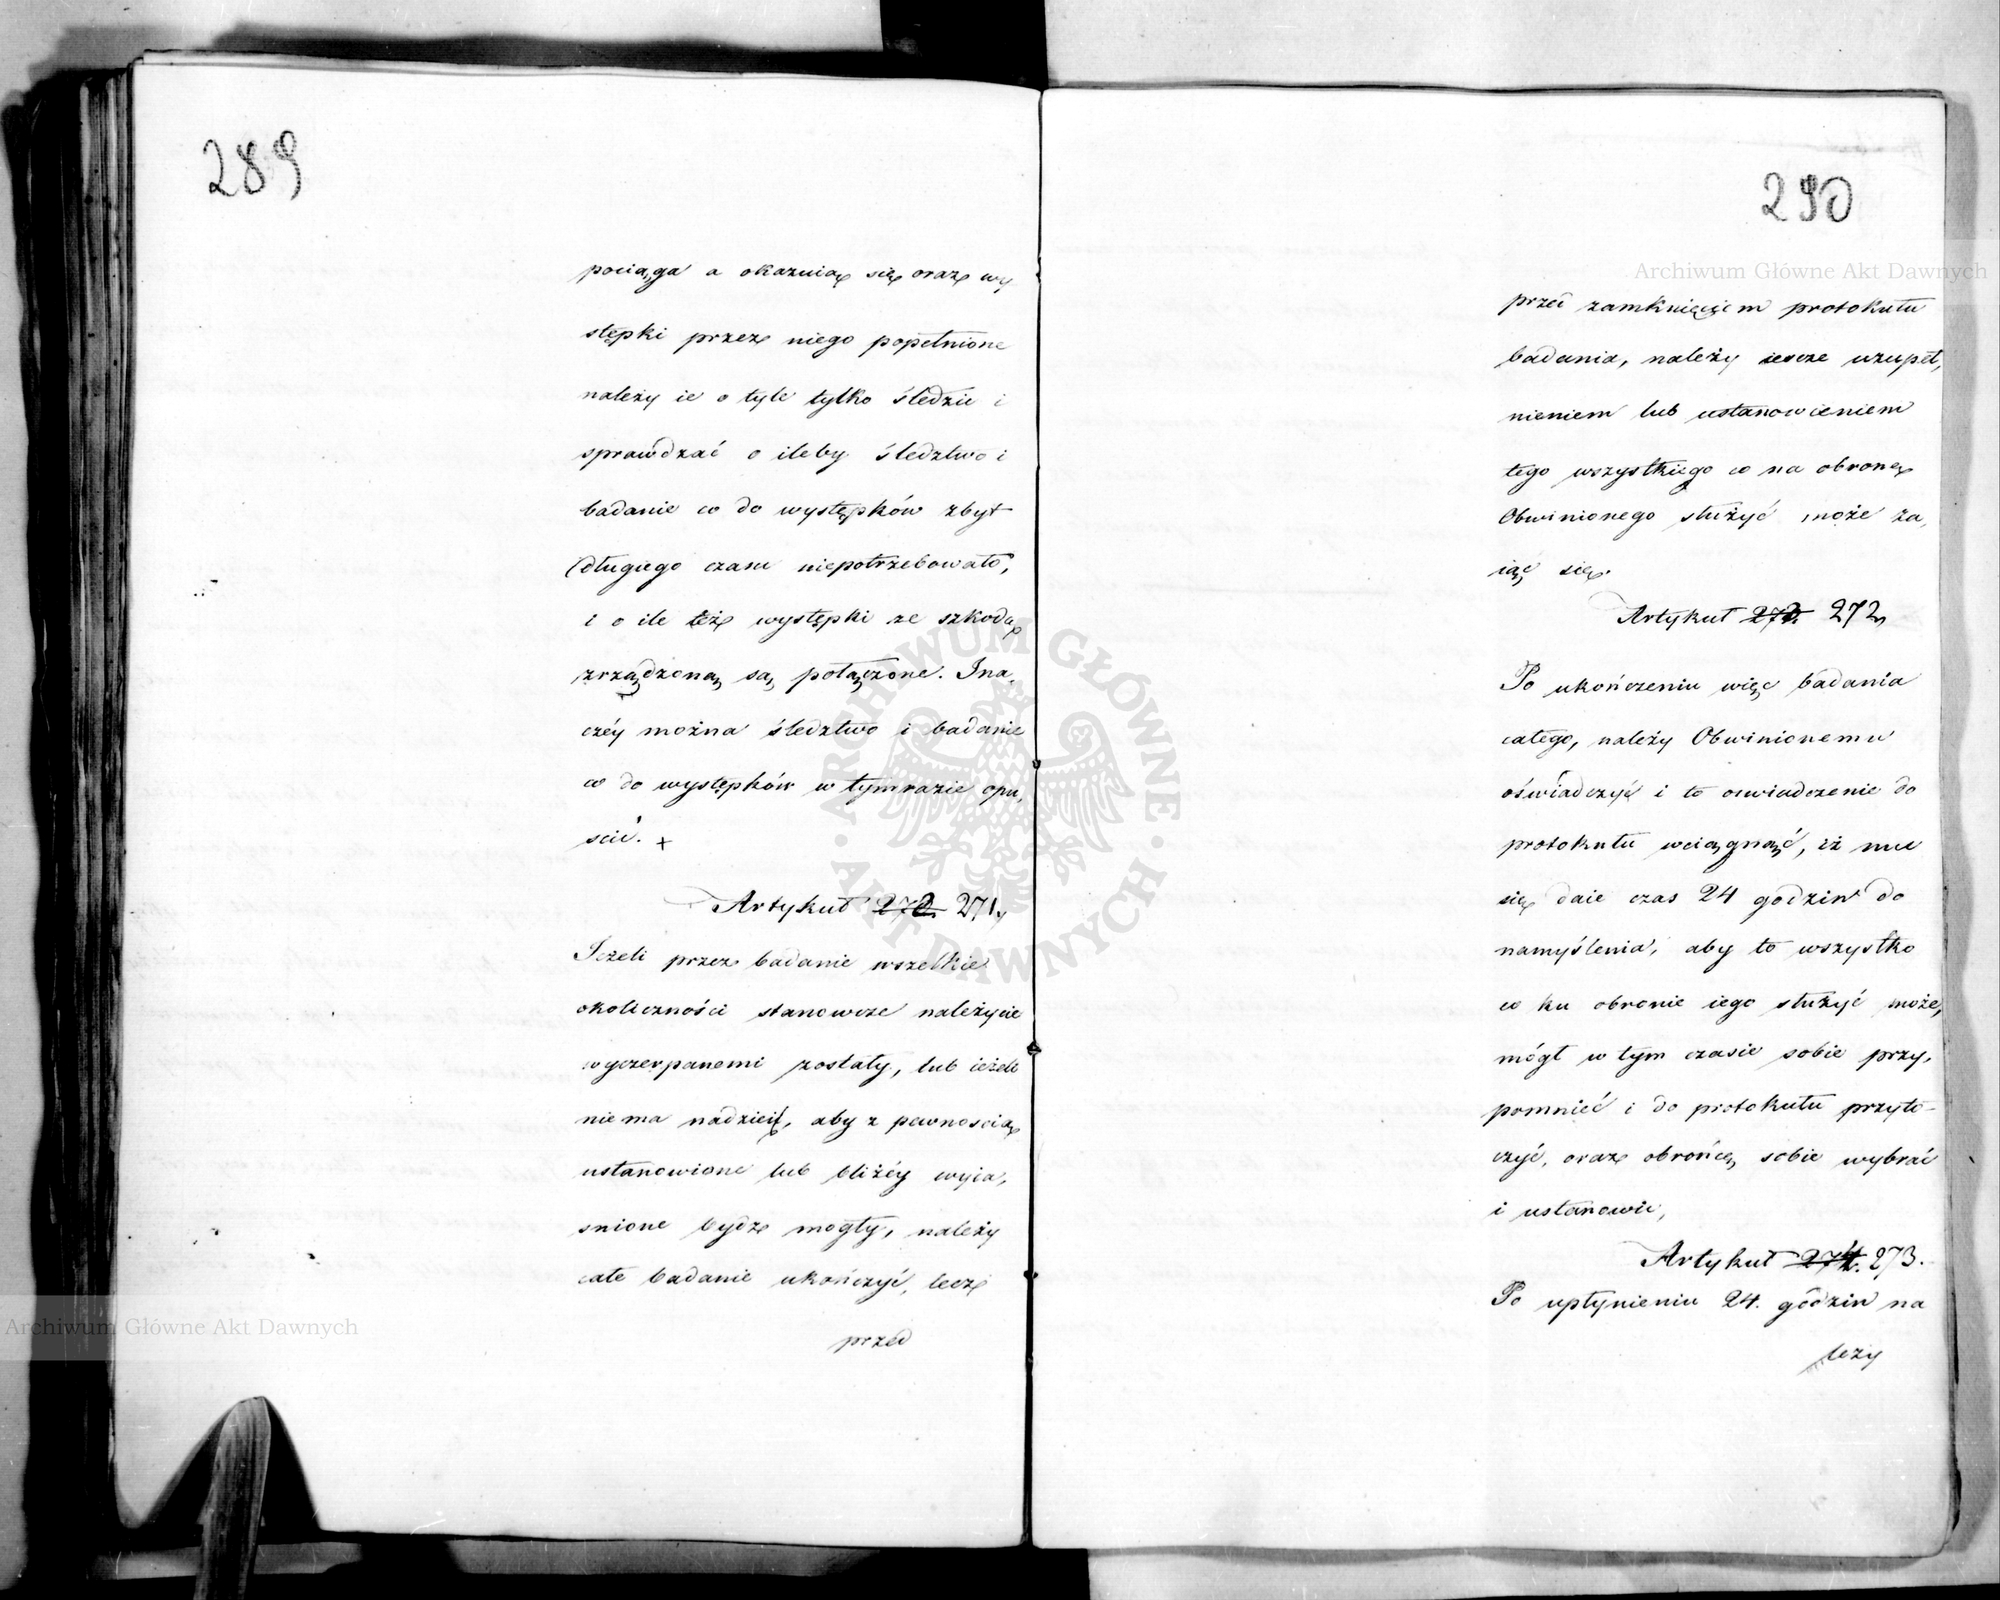 289
pociąga a okazuią się oraz wy
stępki przez niego popełnione
należy ie o tyle tylko śledzić i
sprawdzać o ileby śledztwo i
badanie co do występków zbyt
długiego czasu niepotrzebowało,
i o ile też występki ze szkodą
zrządzoną są połączone. Ina,
czéy można śledztwo i badanie
co do występków w tym razie opu,
scić. +
Artykuł 272. 271.
Jeżeli przez badanie wszelkie
okoliczności stanowcze należycie
wyczerpanemi zostały, lub ieżeli
niema nadzieię, aby z pewnoscią
ustanowione lub bliżéy wyia,
snione bydz mogły, należy
całe badanie ukończyć, lecz
przed
290
przed zamknięciem protokułu
badania, należy iescze uzupeł,
nieniem lub ustanowieniem
tego wszystkiego co na obronę
Obwinionego służyć może za,
iąć się.
Artykuł 273. 272,
Po ukończeniu więc badania
całego, należy Obwinionemu
oświadczyć i to oswiadczenie do
protokułu wciągnąć, iż mu
się daie czas 24 godzin do
namyślenia, aby to wszystko
co ku obronie iego służyć może,
mógł w tym czasie sobie przy,
pomnieć i do protokułu przyto-
czyć, oraz obrońcę sobie wybrać
i ustanowić,
Artykuł 274. 273.
Po upłynieniu 24. godzin na
leży
Archiwum Główne Akt Dawnych
Archiwum Główne Akt Dawnych
ARCHIWUM GŁÓWNE AKT DAWNYCH